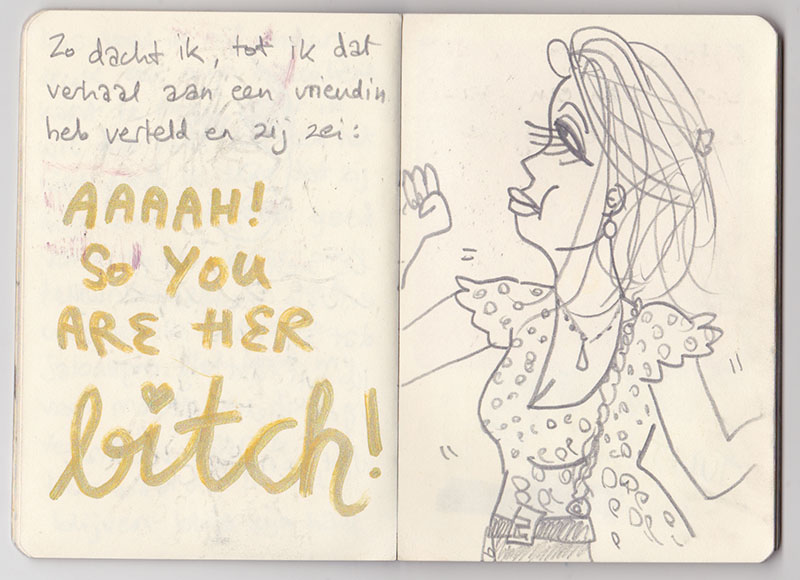 Zo dacht ik, tot ik dat
verhaal aan een vriendin
heb verteld en zij zei:
AAAAH!
So YOU
ARE HER
bitch!